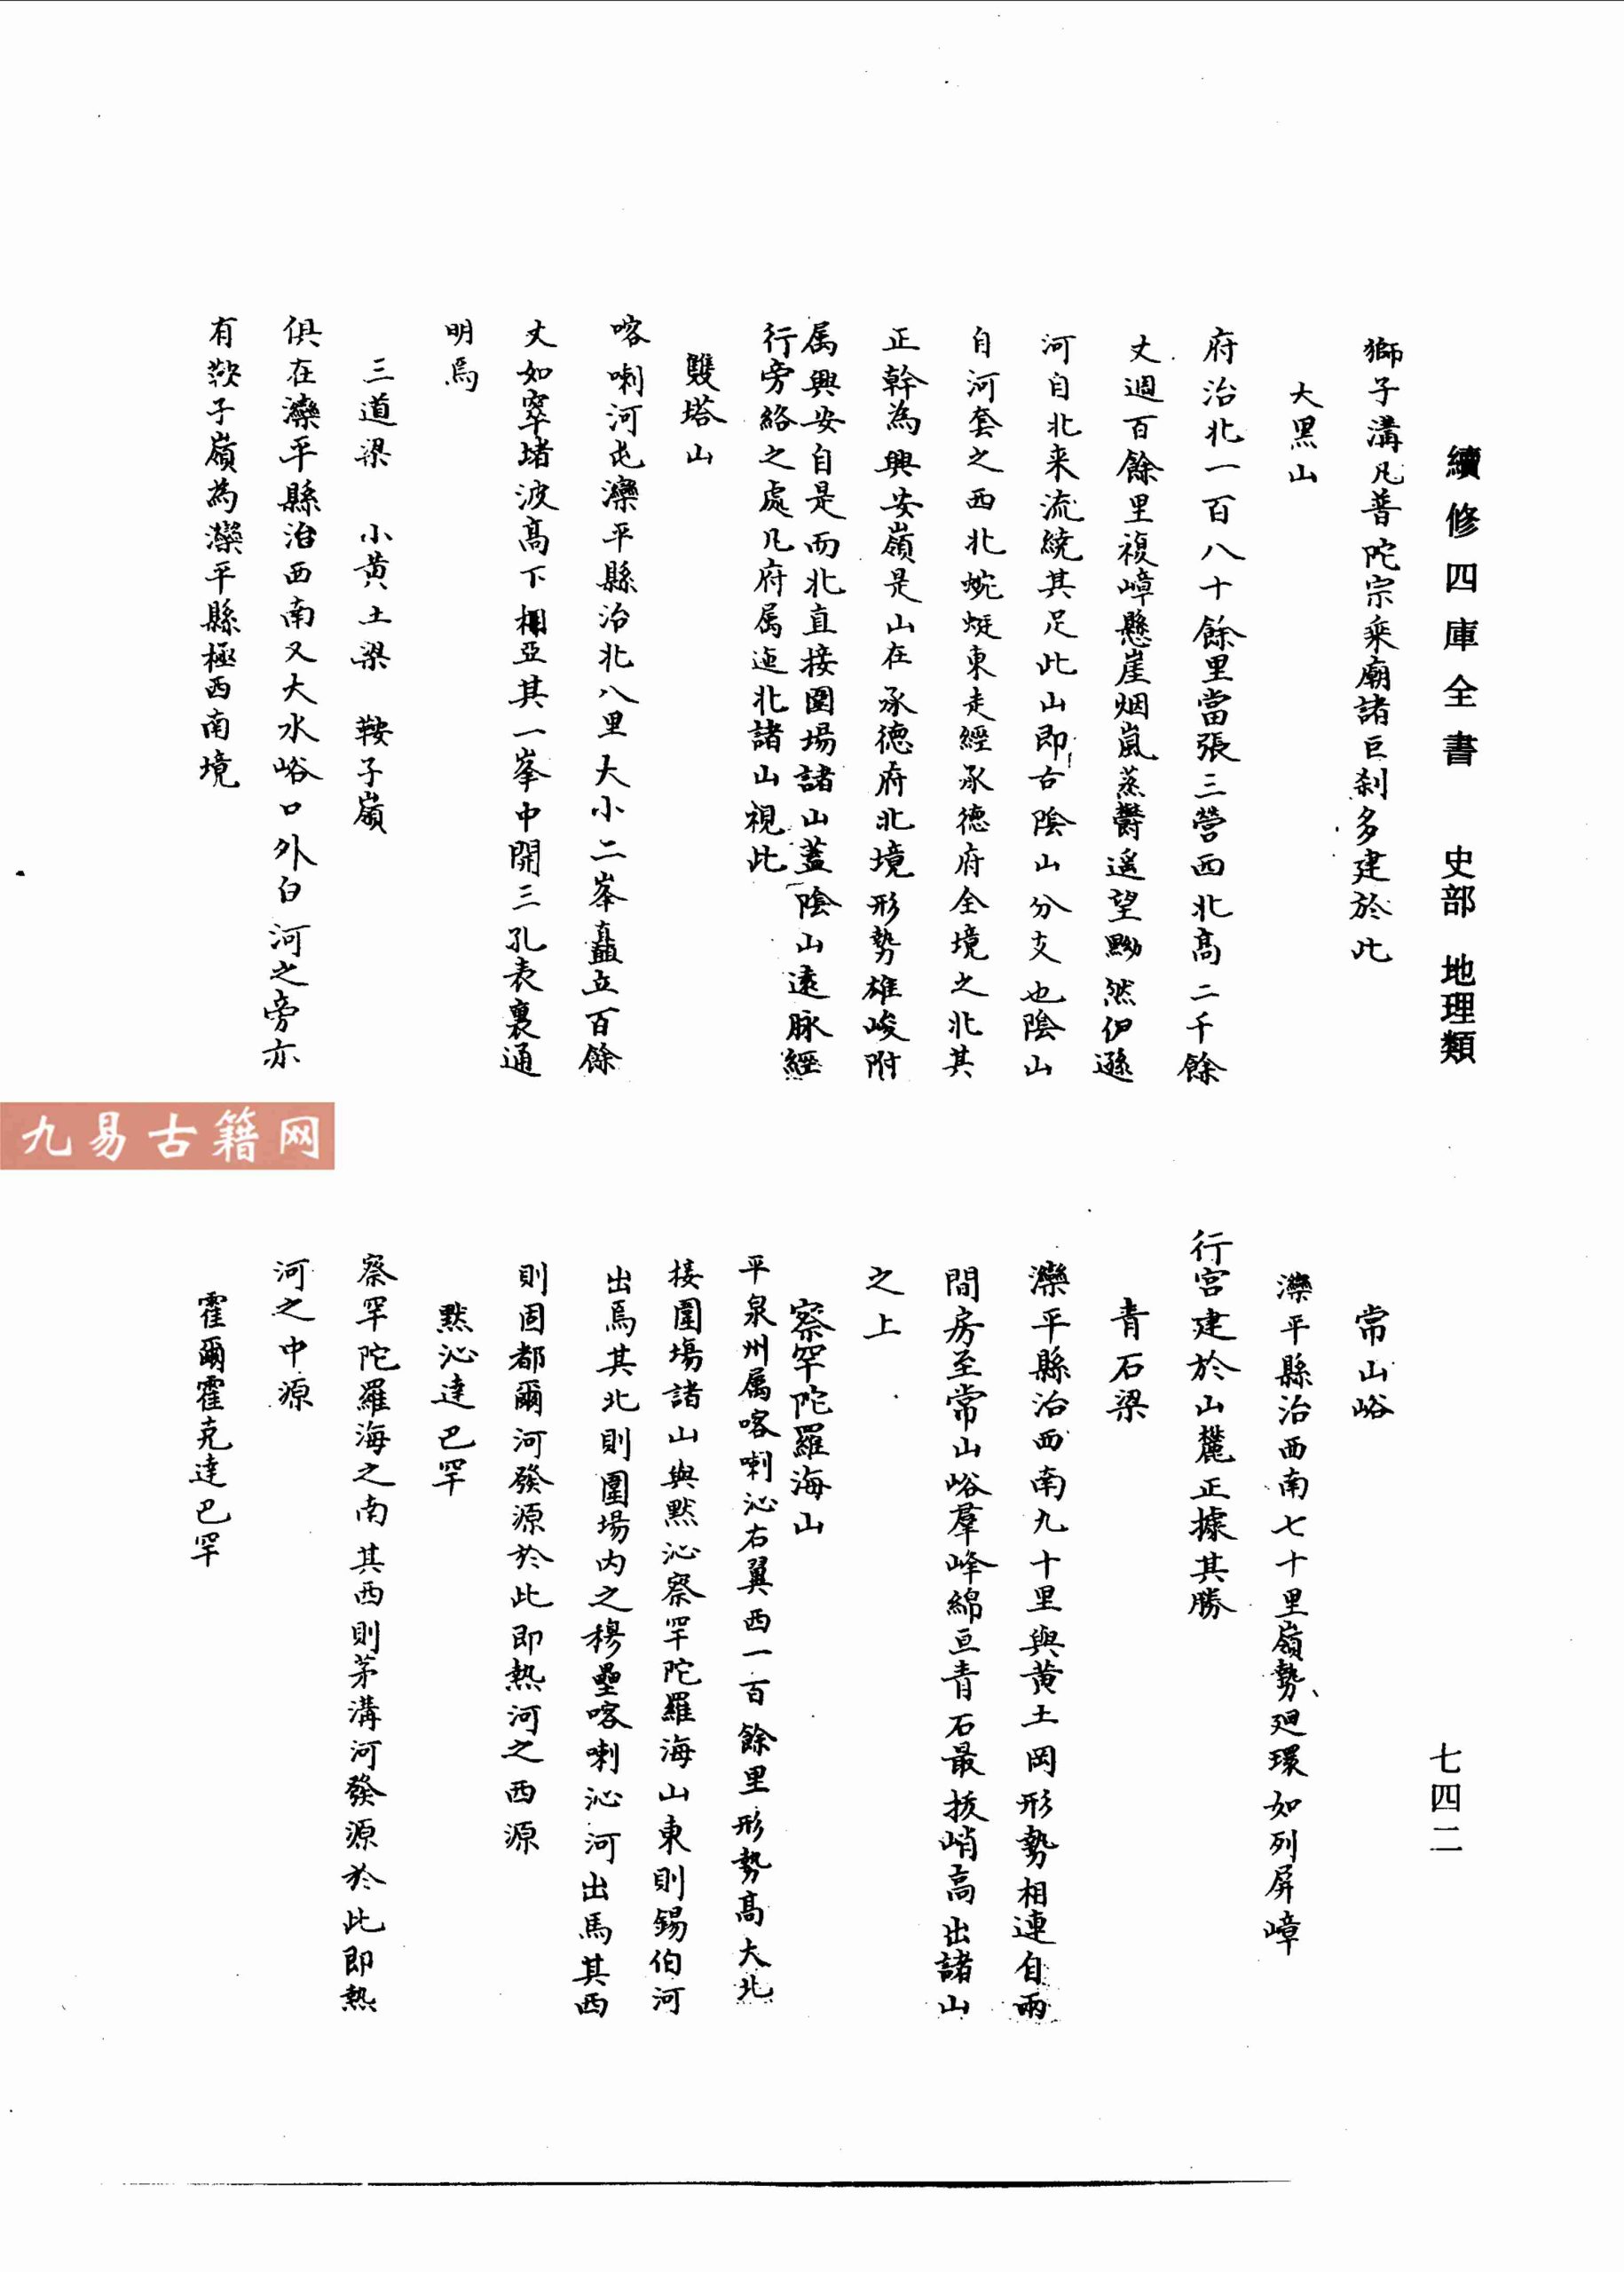 續修四庫全書 史部 地理類
獅子溝凡普陀宗乘廟諸巨刹多建於此
大黑山
府治北一百八十餘里當張三營西北高二千餘
丈週百餘里複嶂懸崖烟嵐蒸鬱遥望黝然伊遜
河自北来流繞其足此山即古陰山分支也陰山
自河套之西北蜿蜒東走經承德府全境之北其
正幹為興安嶺是山在承德府北境形勢雄峻附
属興安自是而北直接圍場諸山蓋陰山遠脉經
行旁絡之處凡府属迤北諸山視此
雙塔山
喀喇河屯灤平縣治北八里大小二峯矗立百餘
丈如窣堵波高下相亞其一峯中開三孔表裏通
明焉
三道梁 小黃土梁 鞍子嶺
俱在灤平縣治西南又大水峪口外白河之旁亦
有鞍子嶺為灤平縣極西南境
九易古籍网
常山峪
灤平縣治西南七十里嶺勢廻環如列屏嶂
行宮建於山麓正據其勝
青石梁
灤平縣治西南九十里與黃土岡形勢相連自兩
間房至常山峪羣峰綿亘青石最㧞峭高出諸山
之上
察罕陀羅海山
平泉州属喀喇沁右翼西一百餘里形勢高大北
接圍場諸山與默沁察罕陀羅海山東則錫伯河
出焉其北則圍場内之穆壘喀喇沁河出焉其西
則固都爾河發源於此即熱河之西源
默沁達巴罕
察罕陀羅海之南其西則茅溝河發源於此即熱
河之中源
霍爾霍克達巴罕
七四二